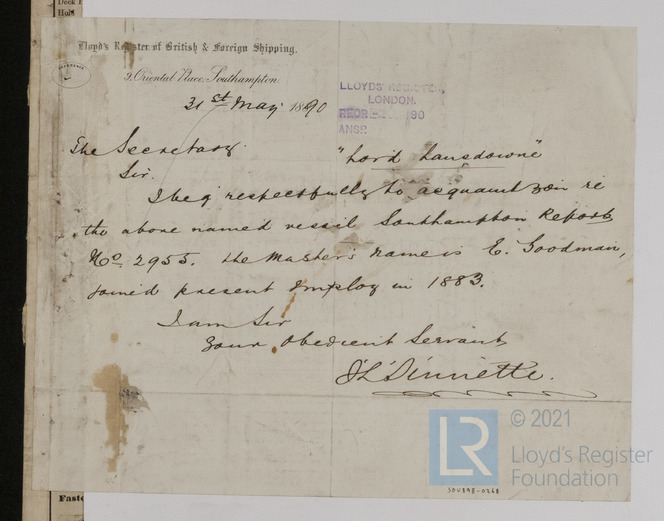 Deck
Hold
Lloyd's Register of British & Foreign Shipping.
9, Oriental Place, Southampton
31st May 1890
LLOYDS REGISTER,
LONDON.
RECD 90
ANSD
The Secretary
"Lord Lansdowne"
Sir.
I beg respectfully to acquaint you re
the above named vessel Southampton Report
No 2955. the Master's name is E. Goodman,
joined present employ in 1883.
I am Sir
your obedient Servant
© 2021
LR
Lloyd's Register
Foundation
SOU898-0268
Faste